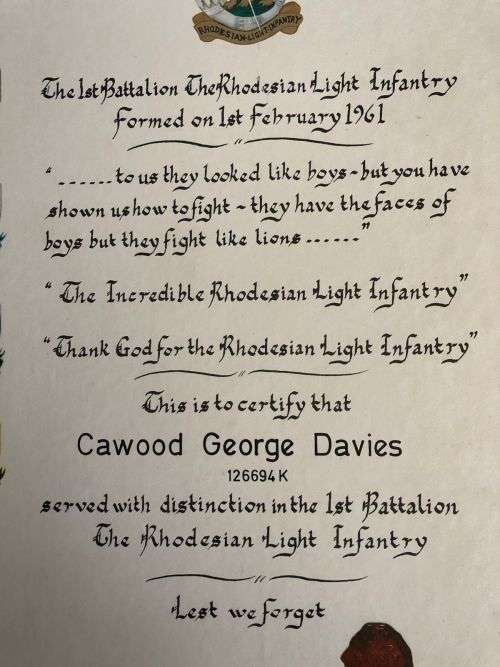 RHODESIAN·LIGHT·INFANTRY
The 1st Battalion The Rhodesian Light Infantry
formed on 1st February 1961
"......to us they looked like boys - but you have
shown us how to fight - they have the faces of
boys but they fight like lions......"
"The Incredible Rhodesian Light Infantry"
"Thank God for the Rhodesian Light Infantry"
This is to certify that
Cawood George Davies
126694K
served with distinction in the 1st Battalion
The Rhodesian Light Infantry
Lest we forget